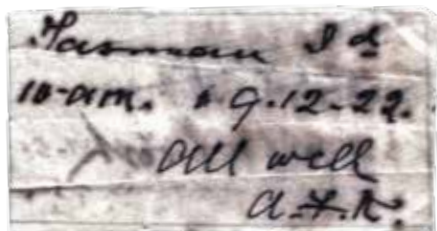 Tasman Id
10-am. 9.12-22.
All well